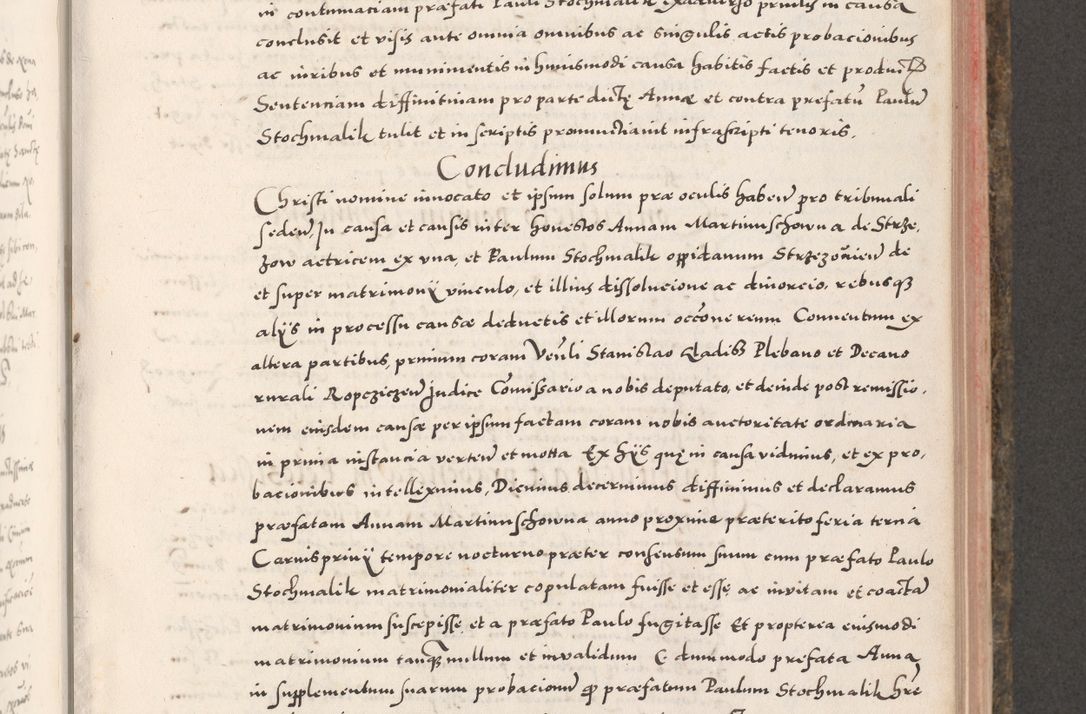 in contumaciam præfati Pauli Stochmalik exadverso prinᷝis in causa
conclusit et visis ante omnia omnibus ac singulis actis probacionibus
ac iuribus et munimentis in huiusmodi causa habitis factis et product
Sentenciam diffinitivam pro parte dictę Annæ et contra prefatū Paulū
Stochmalik tulit et in scriptis pronunctiavit infrascripti tenoris.
Concludimus
Christi nomine invocato et ipsum solum præ oculis haben̄ pro tribunali
seden̄, In causa et causis inter honestos Annam Martinuschowna de Strze,
zow actricem ex una, et Paulum Stochmalik oppidanum Strzezovien̄ de
et super matrimonÿ vinculo, et illius dissolucione ac divorcio, rebusq
alÿs in processu causæ deductis et illorum occōne reum Conventum ex
altera partibus, primum coram Venᷝli Stanislao Gladiss Plebano et Decano
rurali Ropcziczen̄ Iudice Cōmissario a nobis deputato, et deinde post remissio,
nem eiusdem causæ per ipsum factam coram nobis auctoritate ordinaria
in prima instancia verten̄ et motta Ex hÿs quę in causa vidimus, et ex pro,
bacionibus intelleximus, Dicimus decernimus diffinimus et declaramus
præfatam Annam Martinuschowna anno proxime præterito feria tercia
Carnisprivÿ tempore nocturno præter consensum suum cum præfato Paulo
Stochmalik matrimonialiter copulatam fuisse et esse, ac invitam et coactā
matrimonium suscepisse et a præfato Paulo fugitasse Et propterea eiusmodi
matrimonium tanq̄ nullum et invalidum E dummodo prefata Anna
in supplementum suarum probacionū q præfatum Paulum Stochmalik hre